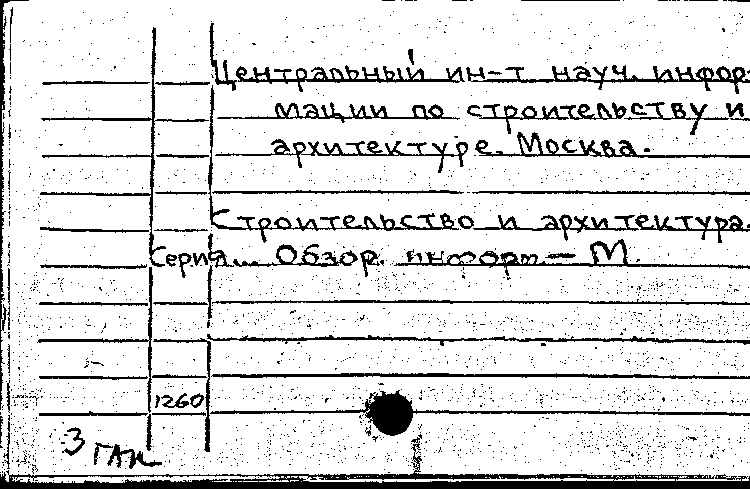 Центральный ин-т науч. инфор-
мации по строительству и
архитектуре. Москва.
Строительство и архитектура.
Серия... Обзор. информ. — М
1260
3